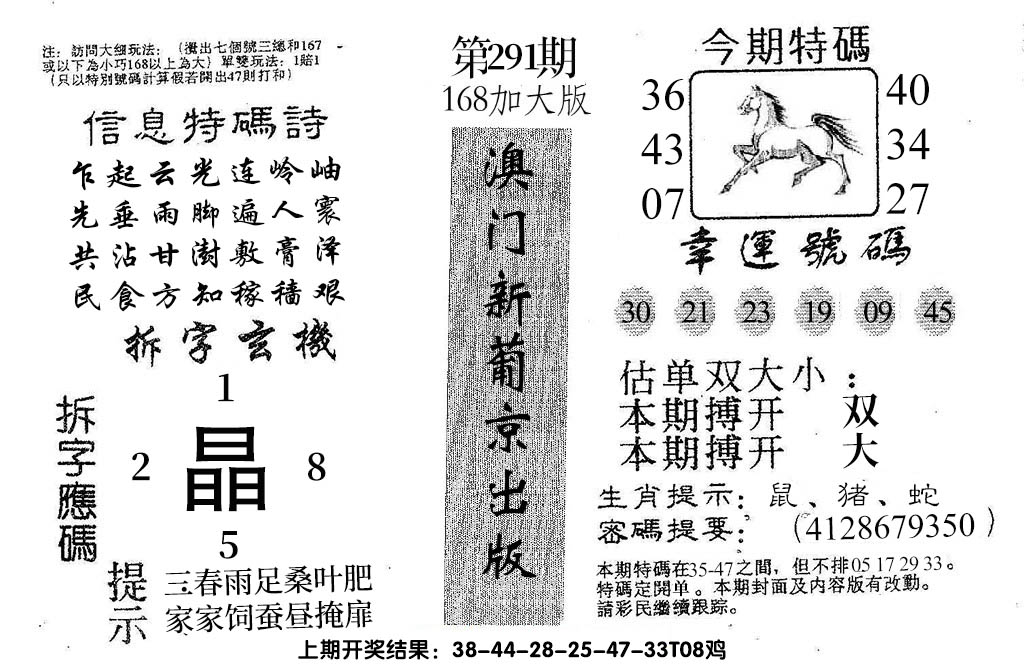 注：訪問大细玩法：（攪出七個號三總和167
或以下為小巧168以上為大）單雙玩法：1賠1
（只以特別號碼計算假若開出47則打和）
信息特碼詩
乍起云光连岭岫
先垂雨脚遍人寰
共沾甘澍敷膏泽
民食方知稼穑艰
拆字玄機
拆字應碼
1
2 晶 8
5
提示
三春雨足桑叶肥
家家饲蚕昼掩扉
第291期
168加大版
澳门新葡京出版
今期特碼
36 40
43 34
07 27
幸運號碼
30 21 23 19 09 45
估单双大小：
本期搏开 双
本期搏开 大
生肖提示：鼠、猪、蛇
密碼提要：（4128679350）
本期特碼在35-47之間，但不排05 17 29 33。
特碼定開单。本期封面及内容版有改動。
請彩民繼續跟踪。
上期开奖结果：38-44-28-25-47-33T08鸡